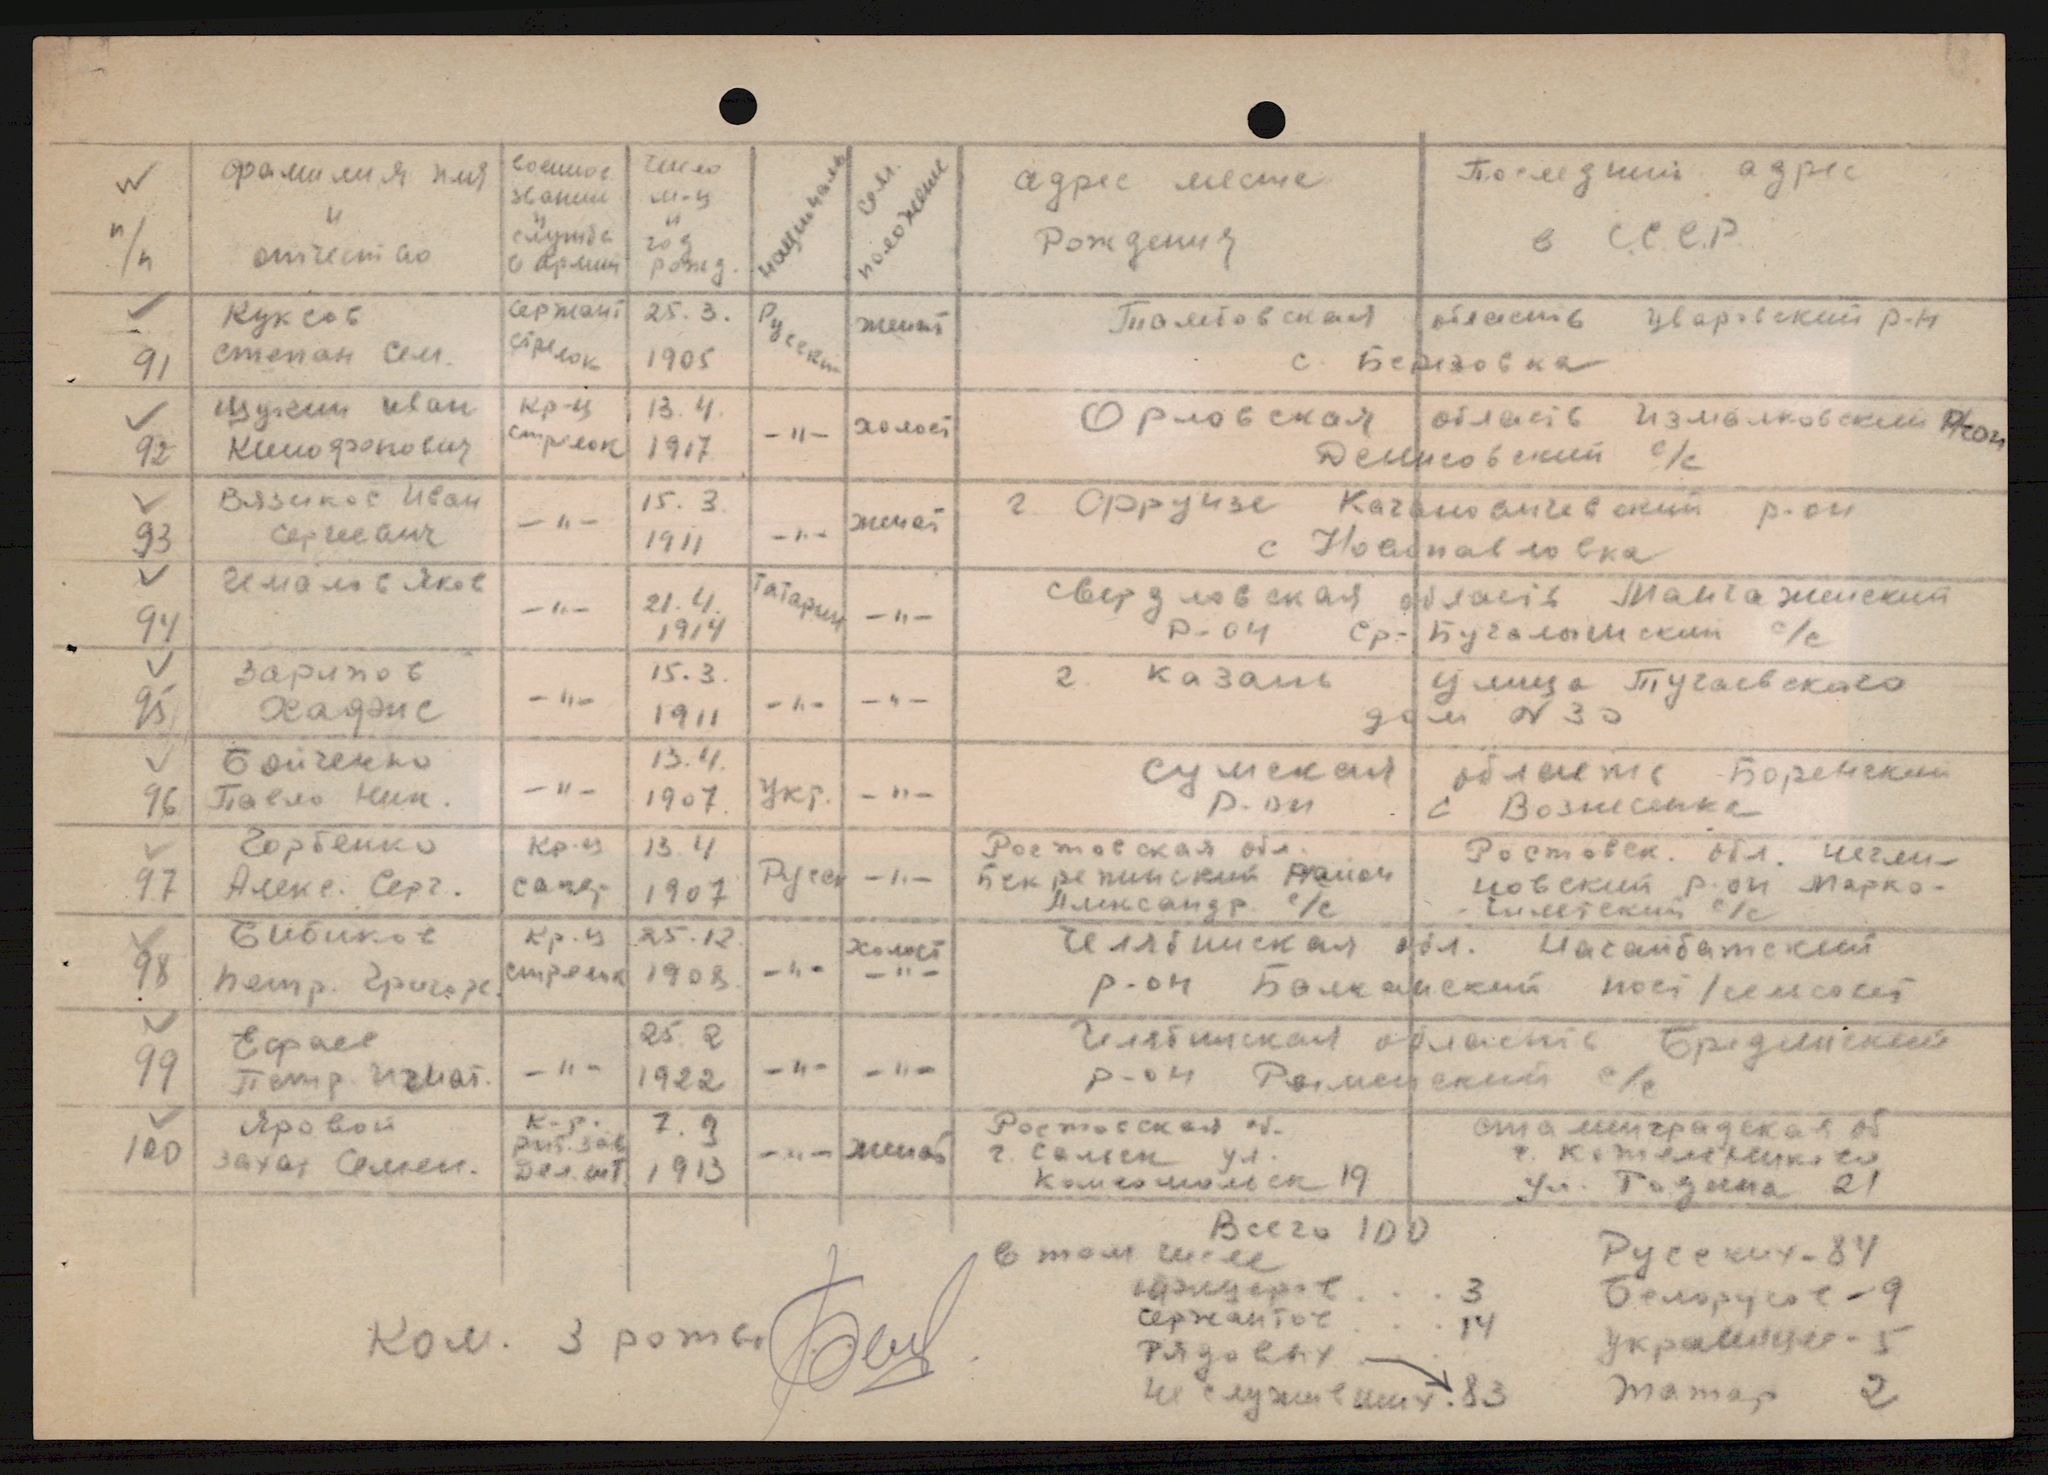 № п/п | фамилия имя и отчество | военное звание и служба в армии | число м-ц и год рожд. | националь | сем. положение | адрес места Рождения | Последний адрес в С.С.С.Р.
91 | Куксов | сержант | 25. 3. | Русский | женат | Тамбовская область Уваровский р-н
Степан Сем. | стрелок | 1905 | с. Березовка
92 | Щукин Иван | Кр-ц | 13. 4. | -"- | холост | Орловская область Измалковский р/он
Кинофонович | стрелок | 1917 | Денисовский с/с
93 | Вязиков Иван | -"- | 15. 3. | -"- | женат | г. Фрунзе Кагановичевский р-он
Сергеевич | 1911 | с Новопавловка
94 | Чмалов Яков | -"- | 21. 4. | Татарин | -"- | Свердловская область Манчаженский
1914 | р-он Ср.-Бугалышский с/с
95 | Зарипов | -"- | 15. 3. | -"- | -"- | г. Казань улица Тукаевского
Хафис | 1911 | дом N 30
96 | Бойченко | -"- | 13. 4. | Укр. | -"- | Сумская область
Павло Ник. | 1907. | р-он с Вознесенка
97 | Горбенко | Кр-ц | 13. 4 | Русск | -"- | Ростовская обл. | Ростовск. обл.
Алекс. Серг. | сапер | 1907 | район | р-он
Александр. с/с | с/с
98 | Бибиков | Кр-ц | 25. 12. | -"- | холост | Челябинская обл. Нагайбатский
Петр. Григорь. | стрелок | 1908. | -"- | р-он Балканский пос/сельсовет
99 | Ефаев | -"- | 25. 2 | -"- | -"- | Челябинская область Брединский
Петр. Игнат. | 1922 | р-он Рымнский с/с
100 | Яровой | К-р. | 7. 9 | -"- | женат | Ростовская об. | Сталинградская об
Захар Семен. | 1913 | г. Сальск ул. | г. Котельниково
Комсомольск 19 | ул. Родина 21
Всего 100
в том числе | Русских - 84
офицеров . . . 3 | Белорусов - 9
сержантов . . . 14 | Украинцев - 5
Рядовых | Татар 2
не служивших. 83
Ком. 3 роты